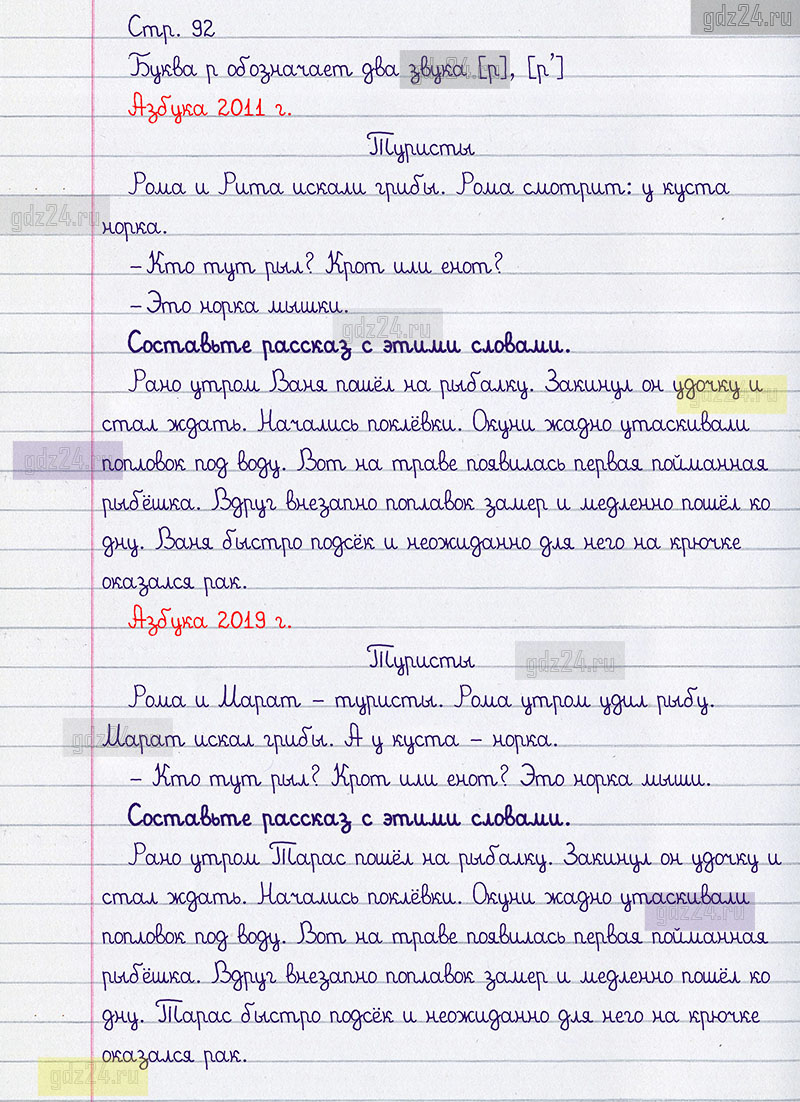 gdz24.ru
Стр. 92
Буква р обозначает два звука [р], [р’]
gdz24.ru
Азбука 2011 г.
Туристы
Рома и Рита искали грибы. Рома смотрит: у куста
gdz24.ru
норка.
– Кто тут рыл? Крот или енот?
– Это норка мышки.
gdz24.ru
Составьте рассказ с этими словами.
Рано утром Ваня пошёл на рыбалку. Закинул он удочку и
gdz24.ru
стал ждать. Начались поклёвки. Окуни жадно утаскивали
gdz24.ru
попловок под воду. Вот на траве появилась первая пойманная
рыбёшка. Вдруг внезапно поплавок замер и медленно пошёл ко
дну. Ваня быстро подсёк и неожиданно для него на крючке
оказался рак.
Азбука 2019 г.
Туристы
gdz24.ru
Рома и Марат – туристы. Рома утром удил рыбу.
gdz24.ru
Марат искал грибы. А у куста – норка.
– Кто тут рыл? Крот или енот? Это норка мыши.
Составьте рассказ с этими словами.
Рано утром Тарас пошёл на рыбалку. Закинул он удочку и
стал ждать. Начались поклёвки. Окуни жадно утаскивали
gdz24.ru
попловок под воду. Вот на траве появилась первая пойманная
рыбёшка. Вдруг внезапно поплавок замер и медленно пошёл ко
дну. Тарас быстро подсёк и неожиданно для него на крючке
оказался рак.
gdz24.ru